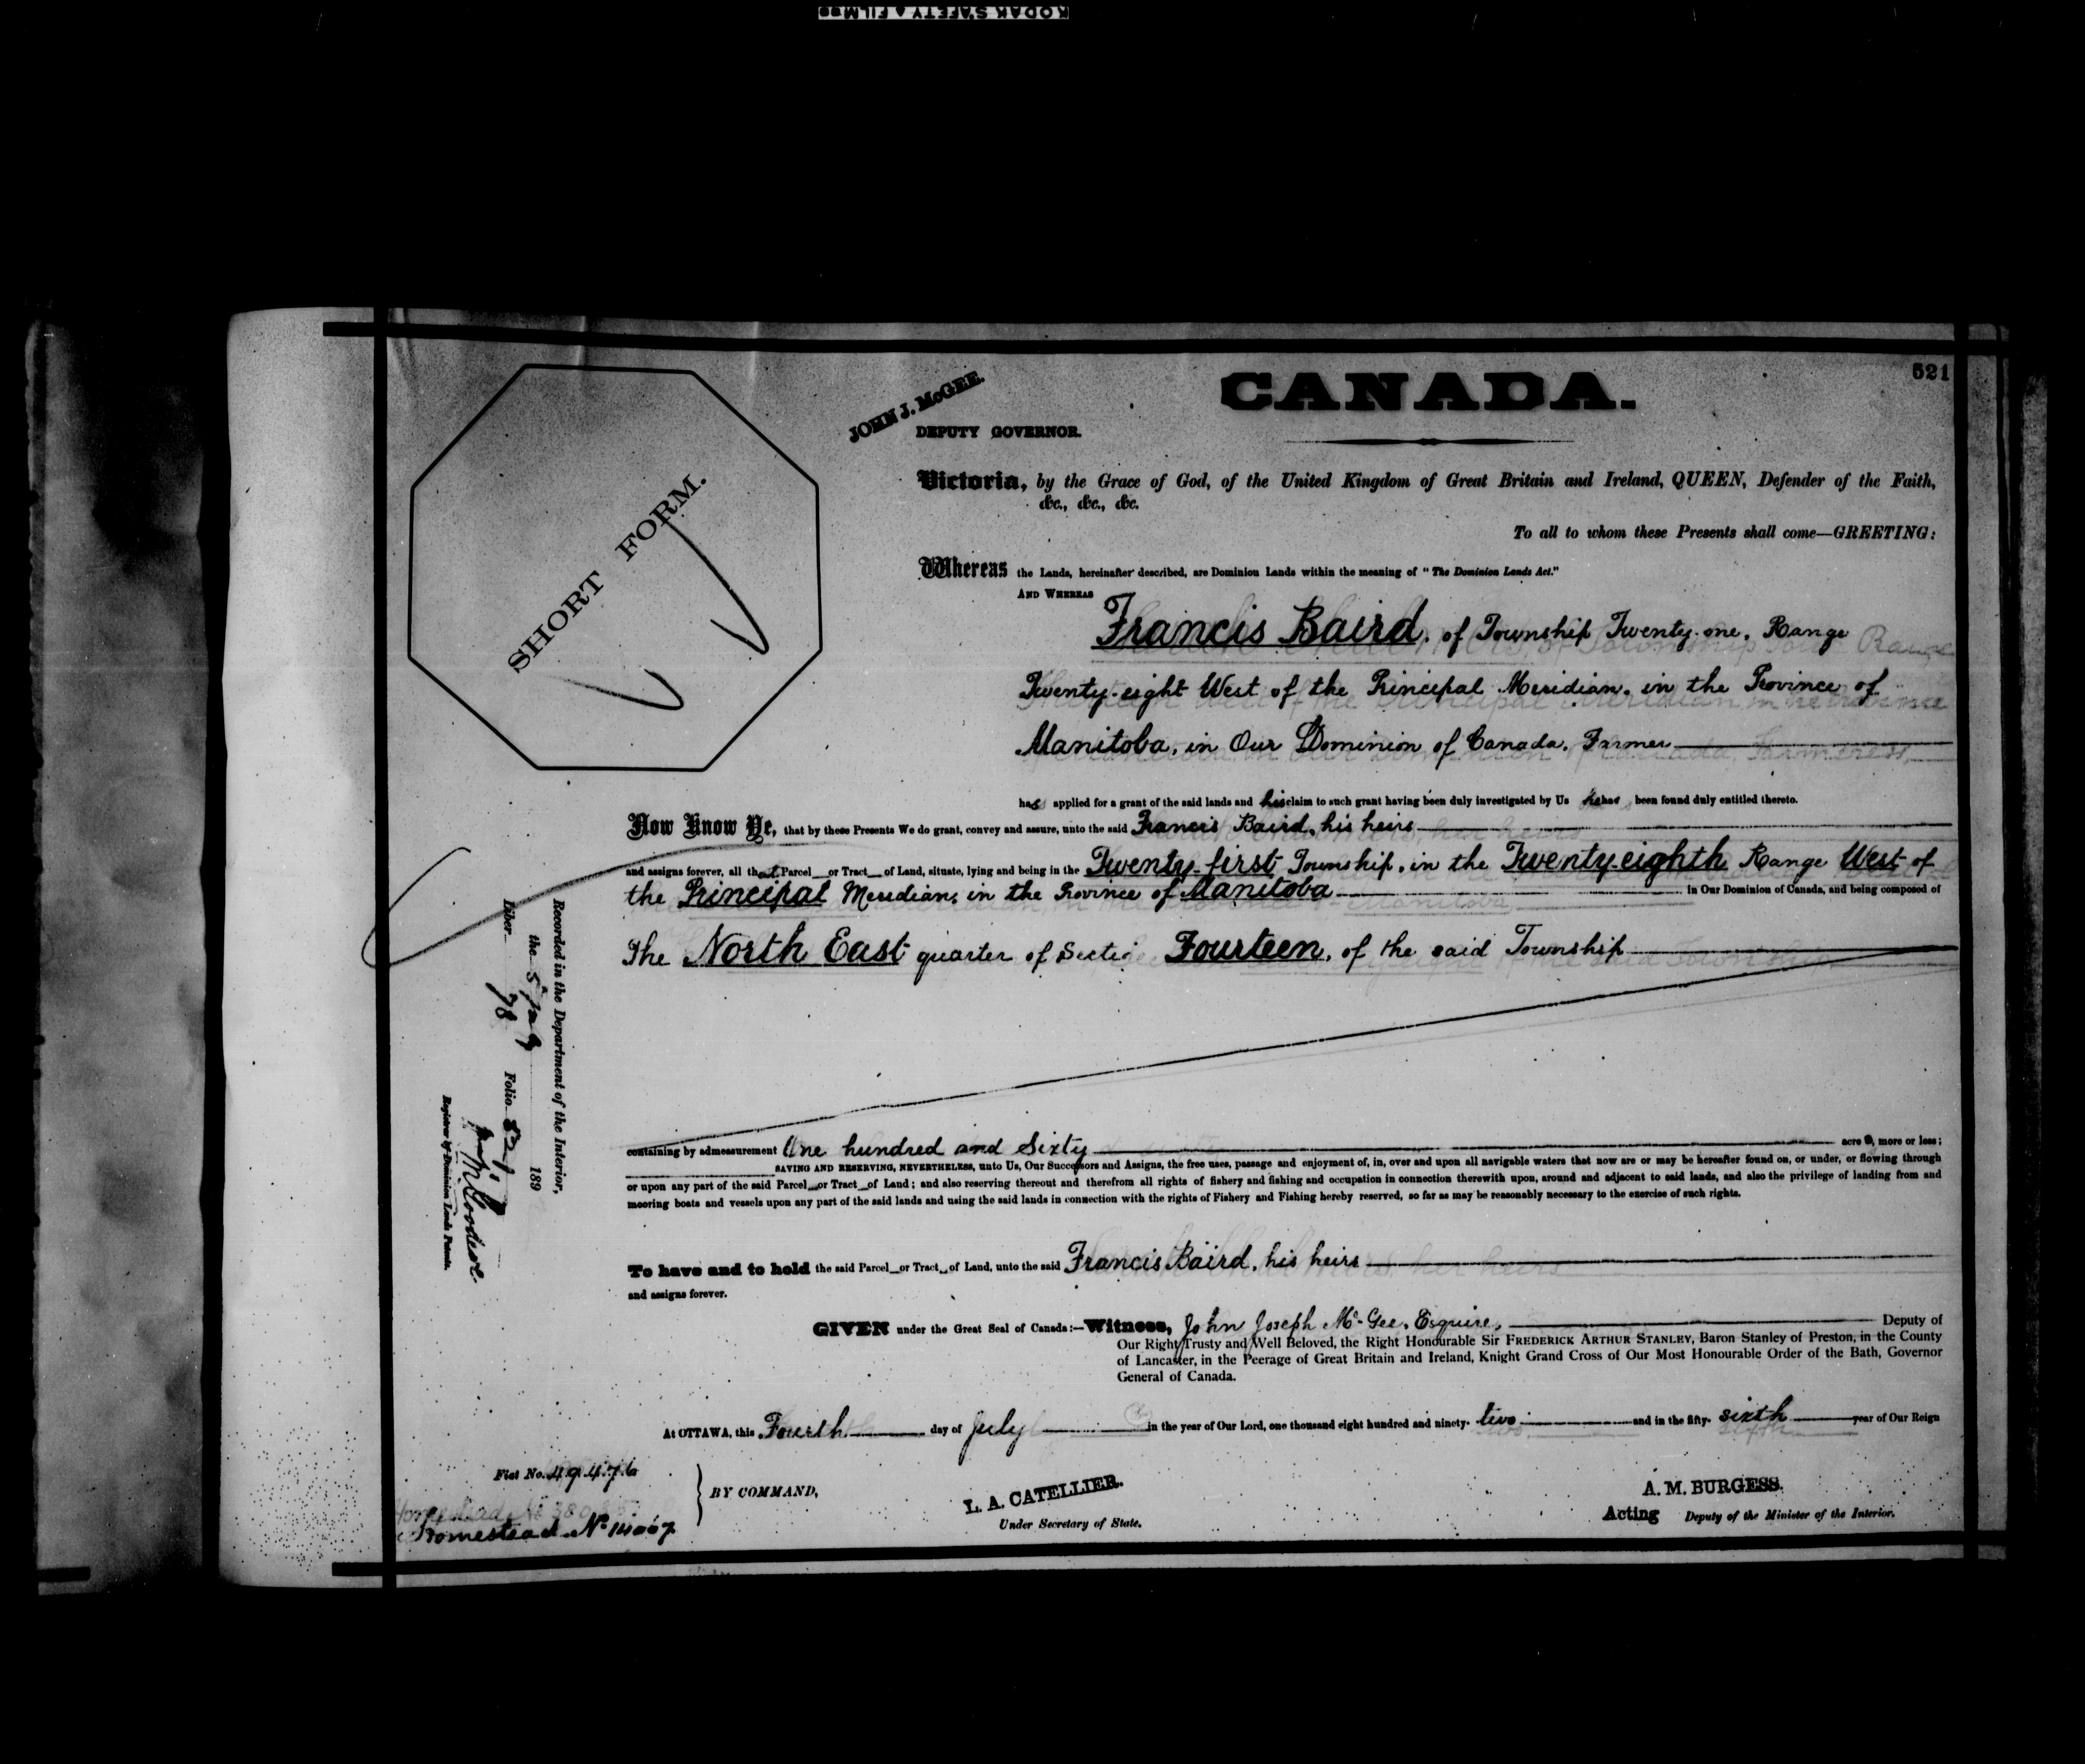 KODAK SAFETY FILM
521
CANADA.
JOHN J. McGEE.
DEPUTY GOVERNOR.
SHORT FORM.
Victoria, by the Grace of God, of the United Kingdom of Great Britain and Ireland, QUEEN, Defender of the Faith,
&c., &c., &c.
To all to whom these Presents shall come—GREETING:
Whereas the Lands, hereinafter described, are Dominion Lands within the meaning of "The Dominion Lands Act."
AND WHEREAS
Francis Baird, of Township Twenty-one, Range
Twenty-eight West of the Principal Meridian, in the Province of
Manitoba, in Our Dominion of Canada, Farmer
has applied for a grant of the said lands and his claim to such grant having been duly investigated by Us he has been found duly entitled thereto.
Now Know Ye, that by these Presents We do grant, convey and assure, unto the said Francis Baird, his heirs
and assigns forever, all that Parcel or Tract of Land, situate, lying and being in the Twenty-first Township, in the Twenty-eighth Range West of
the Principal Meridian, in the Province of Manitoba in Our Dominion of Canada, and being composed of
The North East quarter of Section Fourteen, of the said Township
containing by admeasurement One hundred and Sixty acres, more or less;
SAVING AND RESERVING, NEVERTHELESS, unto Us, Our Successors and Assigns, the free uses, passage and enjoyment of, in, over and upon all navigable waters that now are or may be hereafter found on, or under, or flowing through
or upon any part of the said Parcel or Tract of Land; and also reserving thereout and therefrom all rights of fishery and fishing and occupation in connection therewith upon, around and adjacent to said lands, and also the privilege of landing from and
mooring boats and vessels upon any part of the said lands and using the said lands in connection with the rights of Fishery and Fishing hereby reserved, so far as may be reasonably necessary to the exercise of such rights.
To have and to hold the said Parcel or Tract of Land, unto the said Francis Baird, his heirs
and assigns forever.
GIVEN under the Great Seal of Canada:—Witness, John Joseph McGee, Esquire, Deputy of
Our Right Trusty and Well Beloved, the Right Honourable Sir FREDERICK ARTHUR STANLEY, Baron Stanley of Preston, in the County
of Lancaster, in the Peerage of Great Britain and Ireland, Knight Grand Cross of Our Most Honourable Order of the Bath, Governor
General of Canada.
At OTTAWA, this Fourth day of July in the year of Our Lord, one thousand eight hundred and ninety-two and in the fifty-sixth year of Our Reign
Fiat No. 49476
Homestead No 14007
BY COMMAND,
L. A. CATELLIER.
Under Secretary of State.
A. M. BURGESS.
Acting Deputy of the Minister of the Interior.
Recorded in the Department of the Interior,
the 5 July 189
Liber 78 Folio 521
Registrar of Dominion Lands Patents.